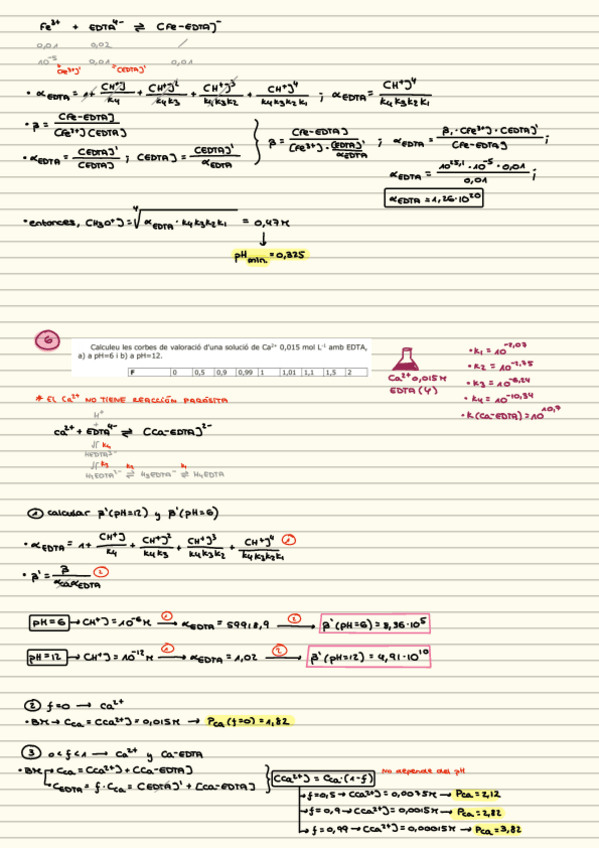 Fe³⁺ + EDTA⁴⁻ ⇌ [Fe-EDTA]⁻
0,01 0,02 /
10⁻⁵ 0,01 0,01
[Fe³⁺]' =[EDTA]'
• αEDTA = 1 + [H⁺]/K4 + [H⁺]²/K4K3 + [H⁺]³/K4K3K2 + [H⁺]⁴/K4K3K2K1 ; αEDTA = [H⁺]⁴/K4K3K2K1
• β = [Fe-EDTA]/[Fe³⁺][EDTA]
• αEDTA = [EDTA]'/[EDTA] ; [EDTA] = [EDTA]'/αEDTA
β = [Fe-EDTA]/[Fe³⁺]·[EDTA]'/αEDTA ; αEDTA = β·[Fe³⁺]·[EDTA]'/[Fe-EDTA] ;
αEDTA = 10²⁵,¹·10⁻⁵·0,01/0,01 ;
αEDTA = 1,26·10²⁰
• entonces, [H3O⁺] = ⁴√αEDTA·K4K3K2K1 = 0,47M
↓
pHmin. = 0,325
6
Calculeu les corbes de valoració d'una solució de Ca²⁺ 0,015 mol L⁻¹ amb EDTA,
a) a pH=6 i b) a pH=12.
F 0 0,5 0,9 0,99 1 1,01 1,1 1,5 2
Ca²⁺ 0,015M
EDTA (Y)
• K1 = 10⁻²,⁰⁷
• K2 = 10⁻²,⁷⁵
• K3 = 10⁻⁶,²⁴
• K4 = 10⁻¹⁰,³⁴
• K(Ca-EDTA) = 10¹⁰,⁷
* EL Ca²⁺ NO TIENE REACCIÓN PARÁSITA
H⁺
+
Ca²⁺ + EDTA⁴⁻ ⇌ [Ca-EDTA]²⁻
⇅ K4
HEDTA³⁻
⇅ K3 K2 K1
H2EDTA²⁻ ⇌ H3EDTA⁻ ⇌ H4EDTA
① calcular β'(pH=12) y β'(pH=6)
• αEDTA = 1 + [H⁺]/K4 + [H⁺]²/K4K3 + [H⁺]³/K4K3K2 + [H⁺]⁴/K4K3K2K1 ①
• β' = β/αCaαEDTA ②
pH=6 → [H⁺] = 10⁻⁶M ①→ αEDTA = 59918,9 ②→ β'(pH=6) = 8,36·10⁵
pH=12 → [H⁺] = 10⁻¹²M ①→ αEDTA = 1,02 ②→ β'(pH=12) = 4,91·10¹⁰
② f=0 → Ca²⁺
• BM → CCa = [Ca²⁺] = 0,015M → PCa (f=0) = 1,82
③ 0<f<1 → Ca²⁺ y Ca-EDTA
• BM → CCa = [Ca²⁺] + [Ca-EDTA]
CEDTA = f·CCa = [EDTA]' + [Ca-EDTA]
[Ca²⁺] = CCa·(1-f) No depende del pH
→ f=0,5 → [Ca²⁺] = 0,0075M → PCa = 2,12
→ f=0,9 → [Ca²⁺] = 0,0015M → PCa = 2,82
→ f=0,99 → [Ca²⁺] = 0,00015M → PCa = 3,82